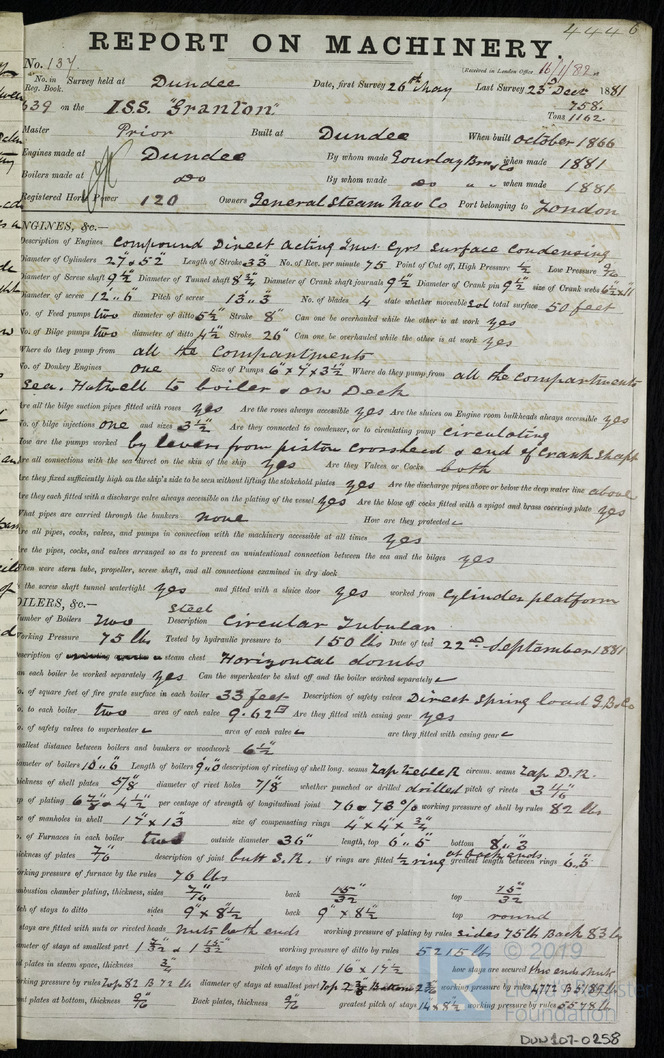 44446
REPORT ON MACHINERY.
No. 137 (Received in London Office 16/1/82
No. in Reg. Book. Survey held at Dundee Date, first Survey 26th May Last Survey 23d Decr 1881
639 on the I.S.S. "Granton" 758. Tons 1162.
Master Prior Built at Dundee When built October 1866
Engines made at Dundee By whom made Gourlay Bros & Co when made 1881
Boilers made at do By whom made do " " when made 1881
Registered Horse Power 120 Owners General Steam Nav Co Port belonging to London
ENGINES, &c.—
Description of Engines Compound Direct Acting Invt Cyrs Surface Condensing
Diameter of Cylinders 27" & 52" Length of Stroke 33" No. of Rev. per minute 75 Point of Cut off, High Pressure 1/2 Low Pressure
Diameter of Screw shaft 9 1/2" Diameter of Tunnel shaft 8 3/4" Diameter of Crank shaft journals 9 1/2" Diameter of Crank pin 9 1/2" size of Crank webs 6 1/2" x 11"
Diameter of screw 12"..6 Pitch of screw 13"..3 No. of blades 4 state whether moveable Sol total surface 50 feet
No. of Feed pumps two diameter of ditto 5 1/2" Stroke 8" Can one be overhauled while the other is at work yes
No. of Bilge pumps two diameter of ditto 4 1/2" Stroke 26" Can one be overhauled while the other is at work yes
Where do they pump from all the Compartments
No. of Donkey Engines one Size of Pumps 6" x 9" x 3 1/2" Where do they pump from all the compartments
Sea. Hotwell to boiler & on Deck
Are all the bilge suction pipes fitted with roses yes Are the roses always accessible yes Are the sluices on Engine room bulkheads always accessible yes
No. of bilge injections one and sizes 3 1/2" Are they connected to condenser, or to circulating pump circulating
How are the pumps worked by levers from piston crosshead & end of Crank Shaft
Are all connections with the sea direct on the skin of the ship yes Are they Valves or Cocks both
Are they fixed sufficiently high on the ship's side to be seen without lifting the stokehold plates yes Are the discharge pipes above or below the deep water line above
Are they each fitted with a discharge valve always accessible on the plating of the vessel yes Are the blow off cocks fitted with a spigot and brass covering plate yes
What pipes are carried through the bunkers none How are they protected
Are all pipes, cocks, valves, and pumps in connection with the machinery accessible at all times yes
Are the pipes, cocks, and valves arranged so as to prevent an unintentional connection between the sea and the bilges yes
When were stern tube, propeller, screw shaft, and all connections examined in dry dock
Is the screw shaft tunnel watertight yes and fitted with a sluice door yes worked from Cylinder platform
BOILERS, &c.—
Steel
Number of Boilers Two Description Circular Tubular
Working Pressure 75 lbs Tested by hydraulic pressure to 150 lbs Date of test 22nd September 1881
Description of steam chest Horizontal dombs
Can each boiler be worked separately yes Can the superheater be shut off and the boiler worked separately
No. of square feet of fire grate surface in each boiler 33 feet Description of safety valves Direct Spring load G.B & Co
No. to each boiler two area of each valve 9.62 Are they fitted with easing gear yes
No. of safety valves to superheater area of each valve are they fitted with easing gear
Smallest distance between boilers and bunkers or woodwork 6 1/2"
Diameter of boilers 10"..6 Length of boilers 9"..0 description of riveting of shell long. seams Lap treble R circum. seams Lap D.R.
Thickness of shell plates 5/8" diameter of rivet holes 7/8" whether punched or drilled drilled pitch of rivets
Lap of plating 6 7/8" & 4 1/2" per centage of strength of longitudinal joint 76 & 73 % working pressure of shell by rules 82 lbs
Size of manholes in shell 17" x 13" size of compensating rings 4" x 4" x 3/4"
No. of Furnaces in each boiler two outside diameter 36" length, top 6'..5" bottom 8'..3
Thickness of plates 7/16" description of joint butt S.R. if rings are fitted 1/2 ring at back ends greatest length between rings 6'..5"
Working pressure of furnace by the rules 76 lbs
Combustion chamber plating, thickness, sides 7/16" back 15"/32 top 15"/32
Pitch of stays to ditto sides 9" x 8 1/2 back 9" x 8 1/2 top round
If stays are fitted with nuts or riveted heads Nuts both ends working pressure of plating by rules sides 75 lb Back 83 lb
Diameter of stays at smallest part working pressure of ditto by rules 5215 lb
End plates in steam space, thickness 3/4" pitch of stays to ditto 16" x 17 1/2" how stays are secured
Working pressure by rules Top 82 B 72 lb diameter of stays at smallest part Top working pressure by rules
Front plates at bottom, thickness 9/16" Back plates, thickness 9/16" greatest pitch of stays 14" x 8 1/2 working pressure by rules 5578 lb
© 2019
Lloyd's Register
Foundation
DUN107-0258